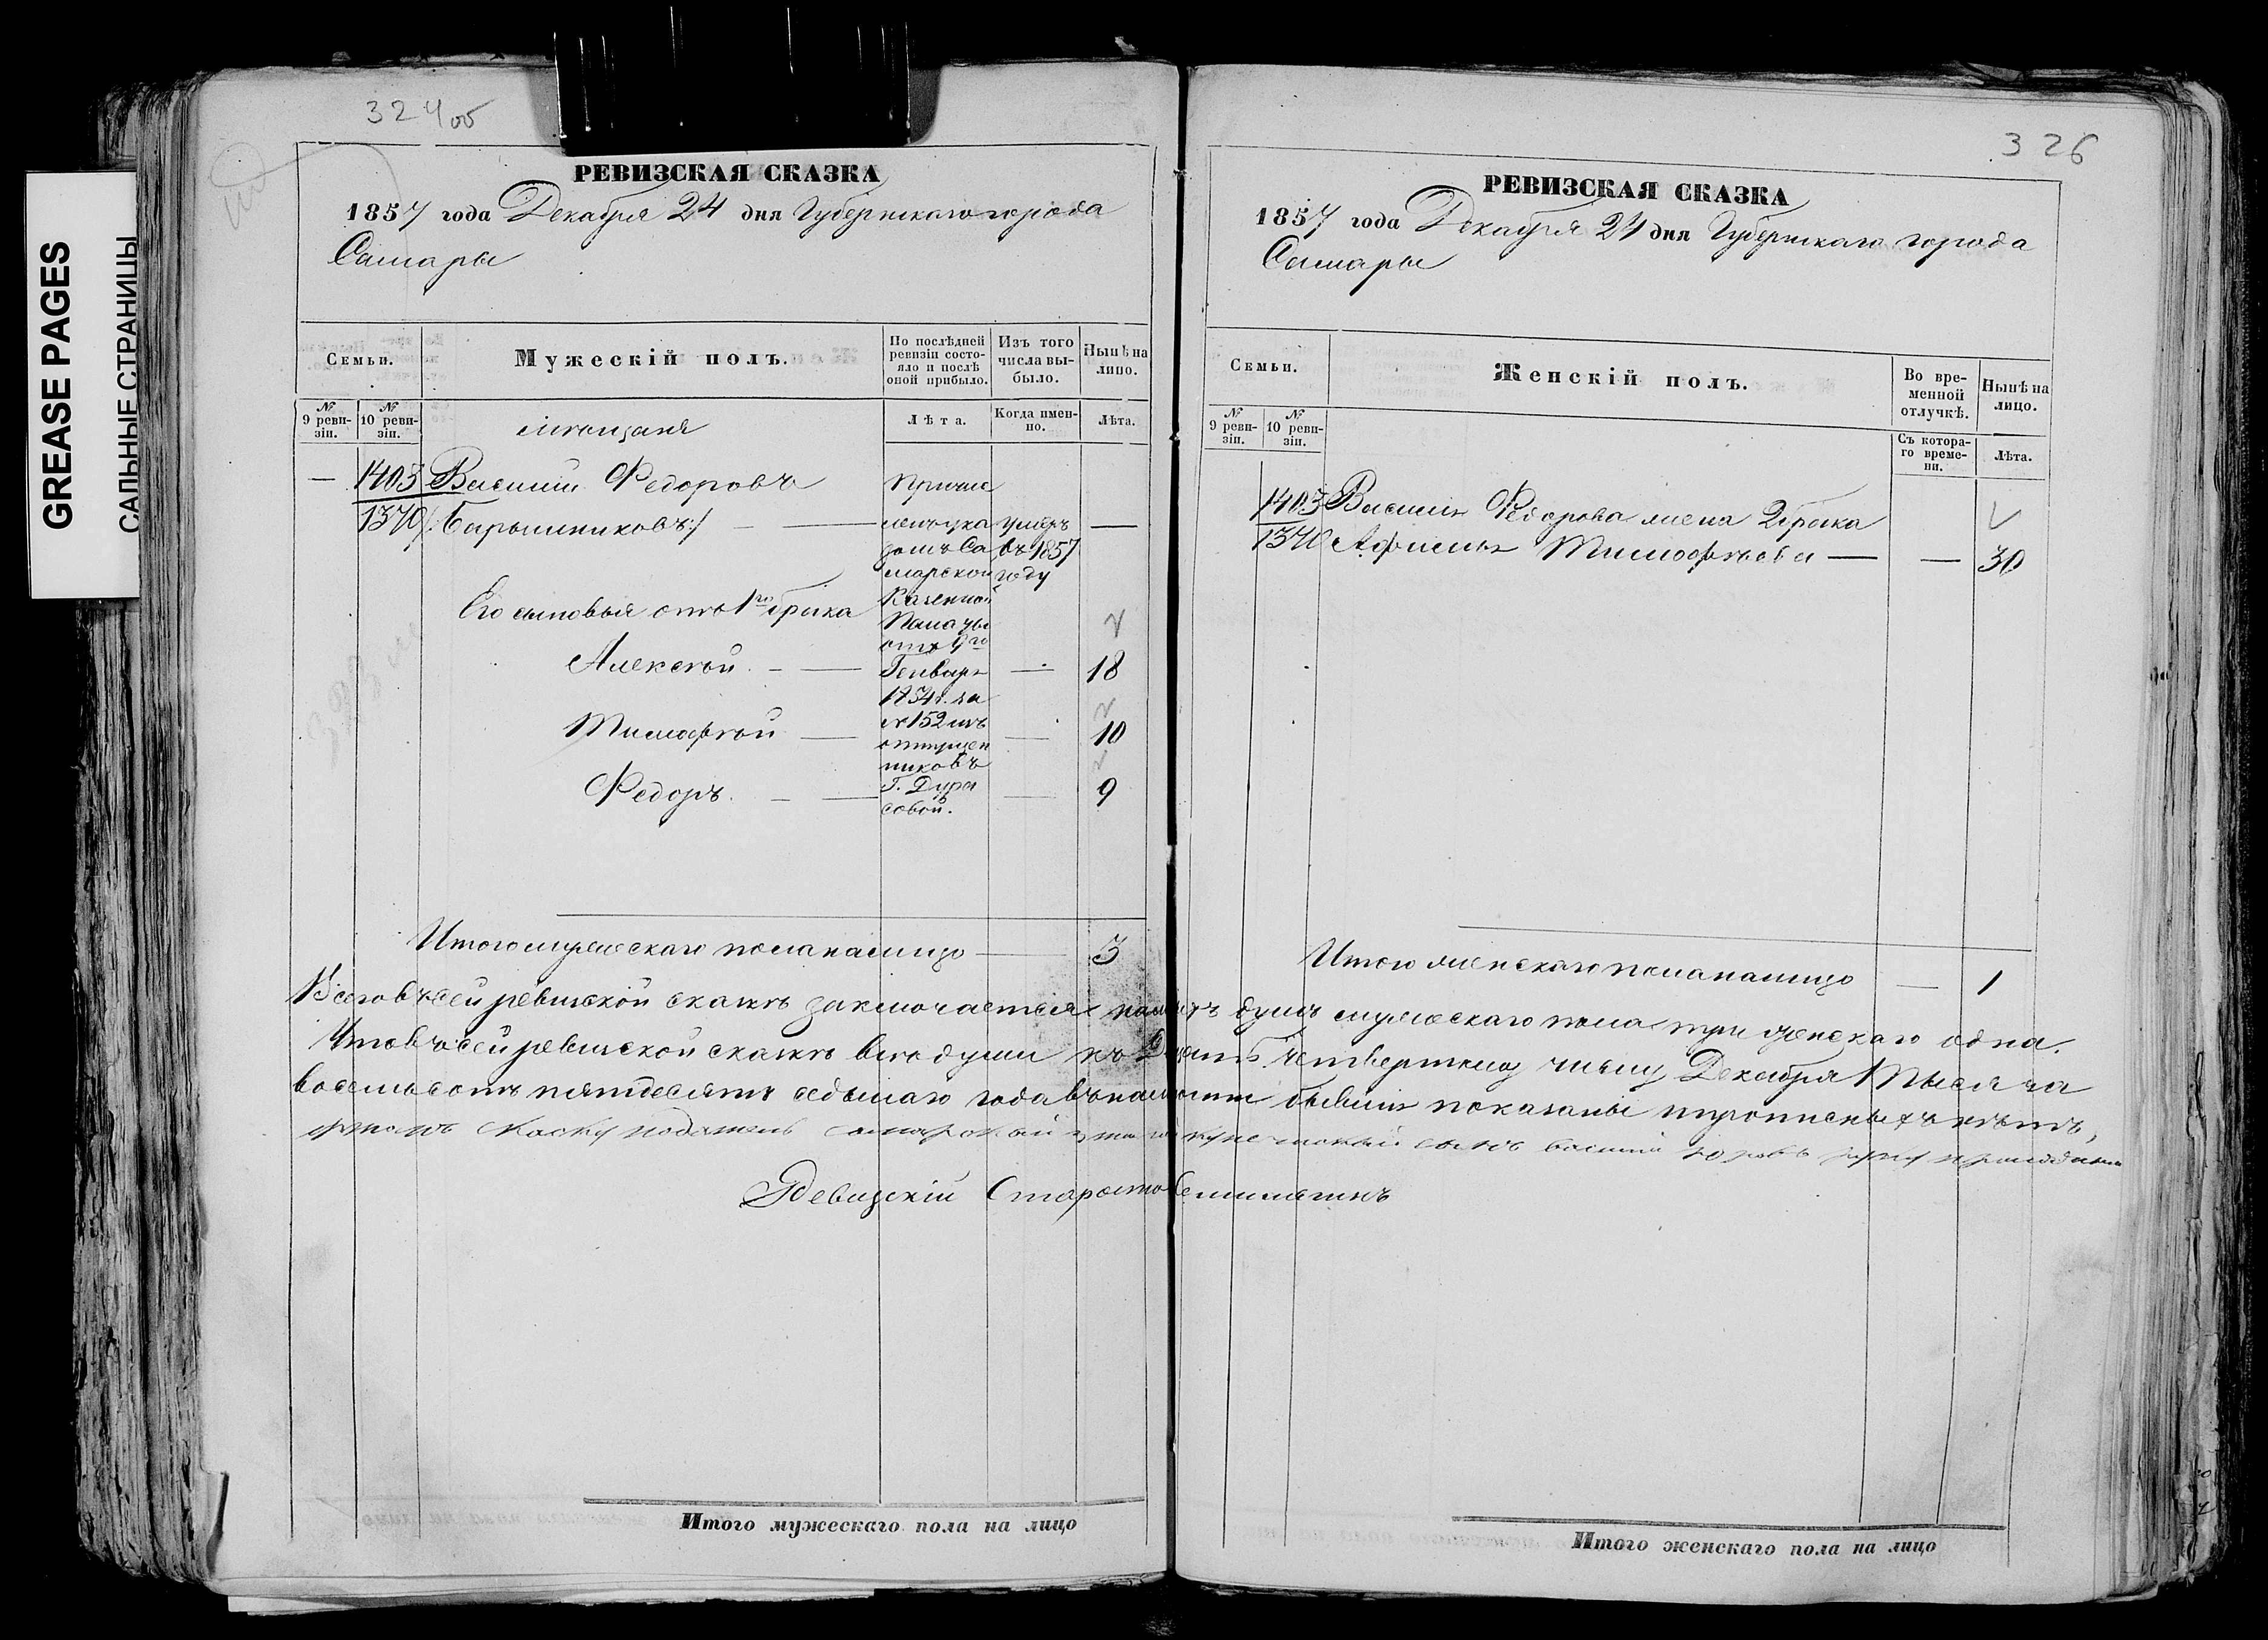 GREASE PAGES
САЛЬНЫЕ СТРАНИЦЫ
324 об
РЕВИЗСКАЯ СКАЗКА
1857 года Декабря 24 дня Губернскаго города
Самары
Семьи.
Мужескій полъ.
По послѣдней ревизіи состояло и послѣ оной прибыло.
Изъ того числа выбыло.
Нынѣ на лицо.
№ 9 ревизіи.
№ 10 ревизіи.
мѣщане
Лѣта.
Когда именно.
Лѣта.
— 1403 Василий Федоровъ
1370 /:Барышниковъ:/ — —
Причис
ленъ ука
зомъ Са
марской
Казенной
Палаты
отъ 9го
Генваря
1854 г. за
№ 152 изъ
отпущен
никовъ
Г. Дура
совой.
умеръ
въ 1857
году
Его сыновья отъ 1го брака
Алексѣй — — 18
Тимофѣй — — 10
Федоръ — — 9
Итого мужескаго пола на лицо — 3
326
РЕВИЗСКАЯ СКАЗКА
1857 года Декабря 24 дня Губернскаго города
Самары
Семьи.
Женскій полъ.
Во временной отлучкѣ.
Нынѣ на лицо.
№ 9 ревизіи.
№ 10 ревизіи.
Съ котораго времени.
Лѣта.
1403 Василія Федорова жена 2 брака
1370 Тимофѣева — — 30
Итого женскаго пола на лицо — 1
Всего въ сей ревизской сказкѣ заключается на лицо душъ мужескаго пола три женскаго одна.
Что въ сей ревизской сказкѣ всѣ души къ Двадцать четвертому числу Декабря Тысяча
восемьсотъ пятьдесятъ седьмаго года въ бывшія показаны
подател купеческий сынъ василий руку приложилъ
Ревизскій Староста
Итого мужескаго пола на лицо
Итого женскаго пола на лицо